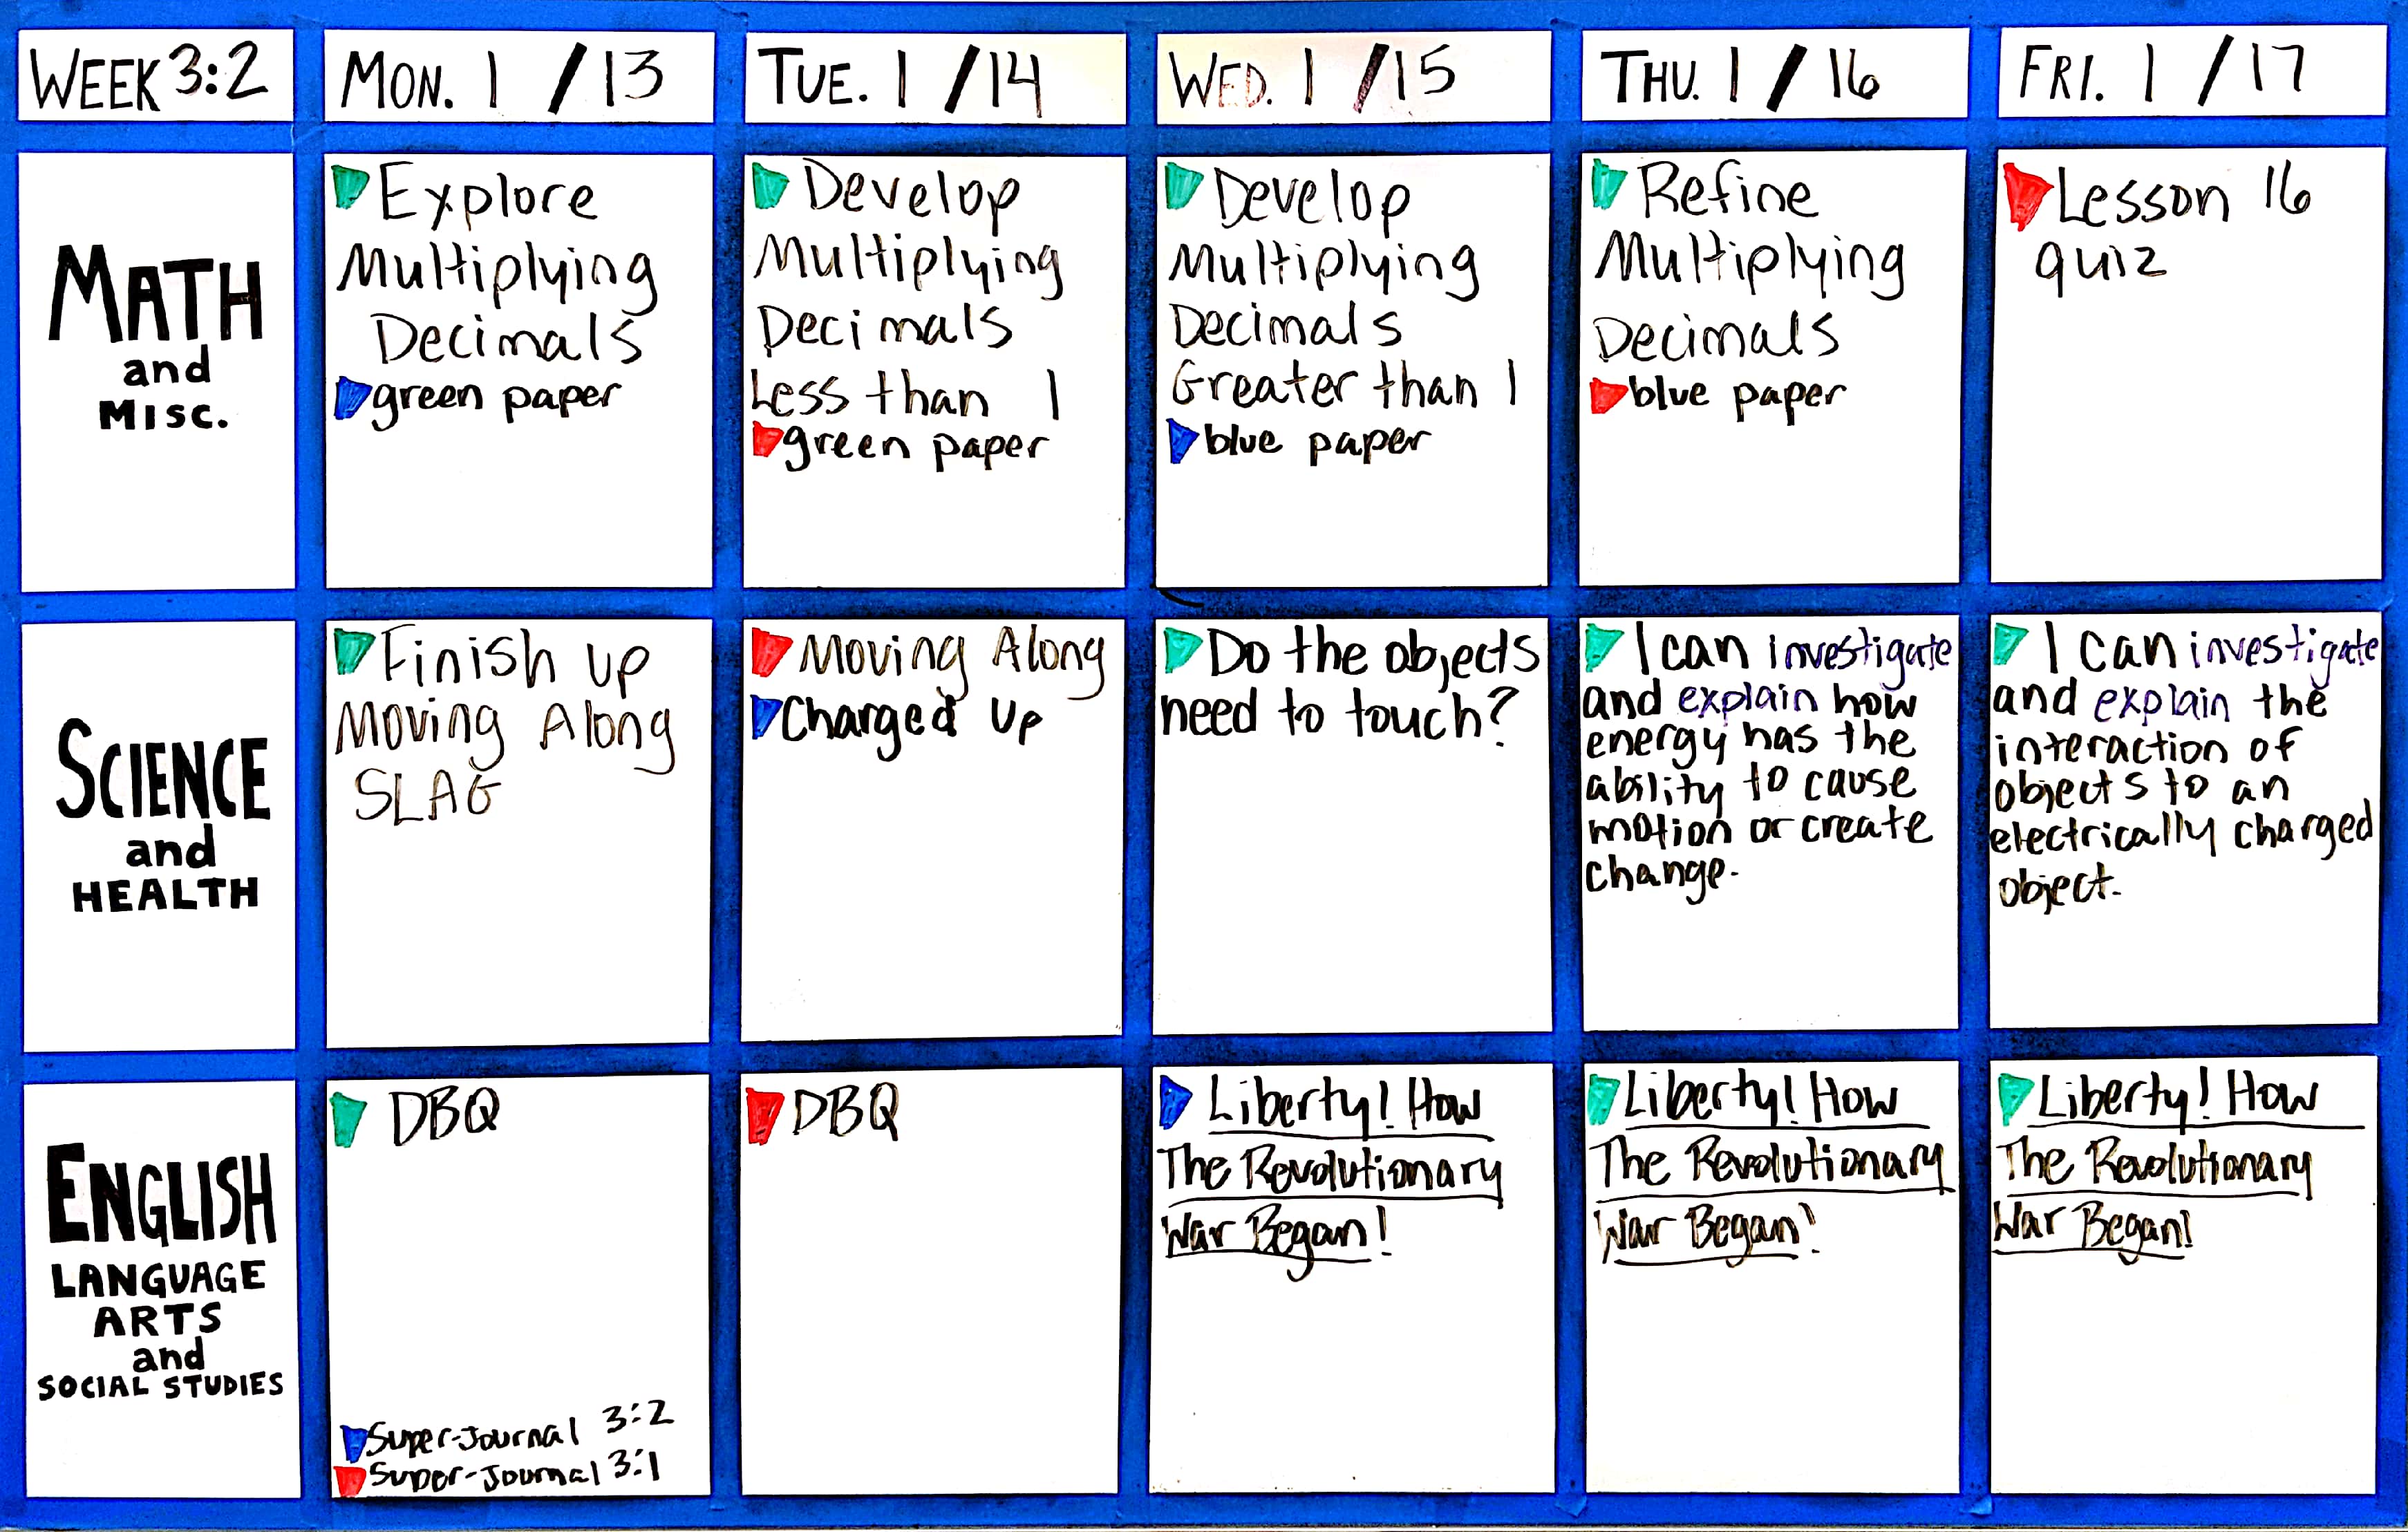 WEEK 3:2
MON. 1 / 13
TUE. 1 / 14
WED. 1 / 15
THU. 1 / 16
FRI. 1 / 17
MATH
and
MISC.
Explore
Multiplying
Decimals
green paper
Develop
Multiplying
Decimals
Less than 1
green paper
Develop
Multiplying
Decimals
Greater than 1
blue paper
Refine
Multiplying
Decimals
blue paper
Lesson 16
quiz
SCIENCE
and
HEALTH
Finish up
Moving Along
SLAG
Moving Along
Charged Up
Do the objects
need to touch?
I can investigate
and explain how
energy has the
ability to cause
motion or create
change.
I can investigate
and explain the
interaction of
objects to an
electrically charged
object.
ENGLISH
LANGUAGE
ARTS
and
SOCIAL STUDIES
DBQ
Super-Journal 3:2
Super-Journal 3:1
DBQ
Liberty! How
The Revolutionary
War Began!
Liberty! How
The Revolutionary
War Began!
Liberty! How
The Revolutionary
War Began!